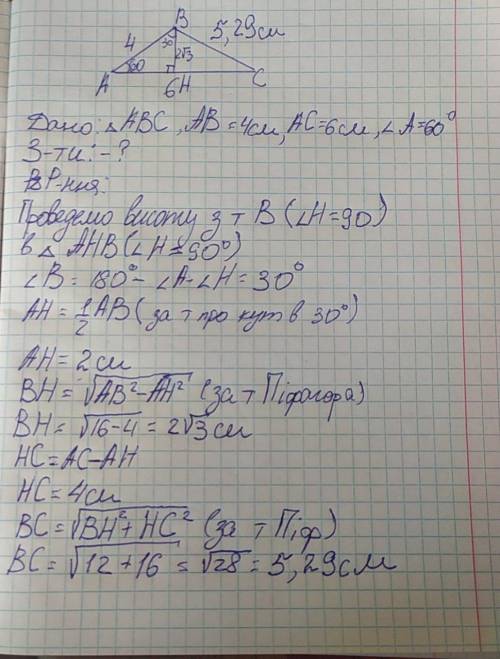 B
5,29см
4
30
2√3
60
A
6H
C
Дано: △ABC, AB=4см, AC=6см, ∠A=60°
З-ти: - ?
Р-ння:
Проведемо висоту з т B (∠H=90)
в △ AHB (∠H=90°)
∠B = 180° - ∠A-∠H = 30°
AH = 1/2 AB (за т про кут в 30°)
AH = 2 см
BH = √AB²-AH² (за т Піфагора)
BH = √16-4 = 2√3 см
HC = AC-AH
HC = 4см
BC = √BH²+HC² (за т Піф)
BC = √12+16 = √28 = 5,29см